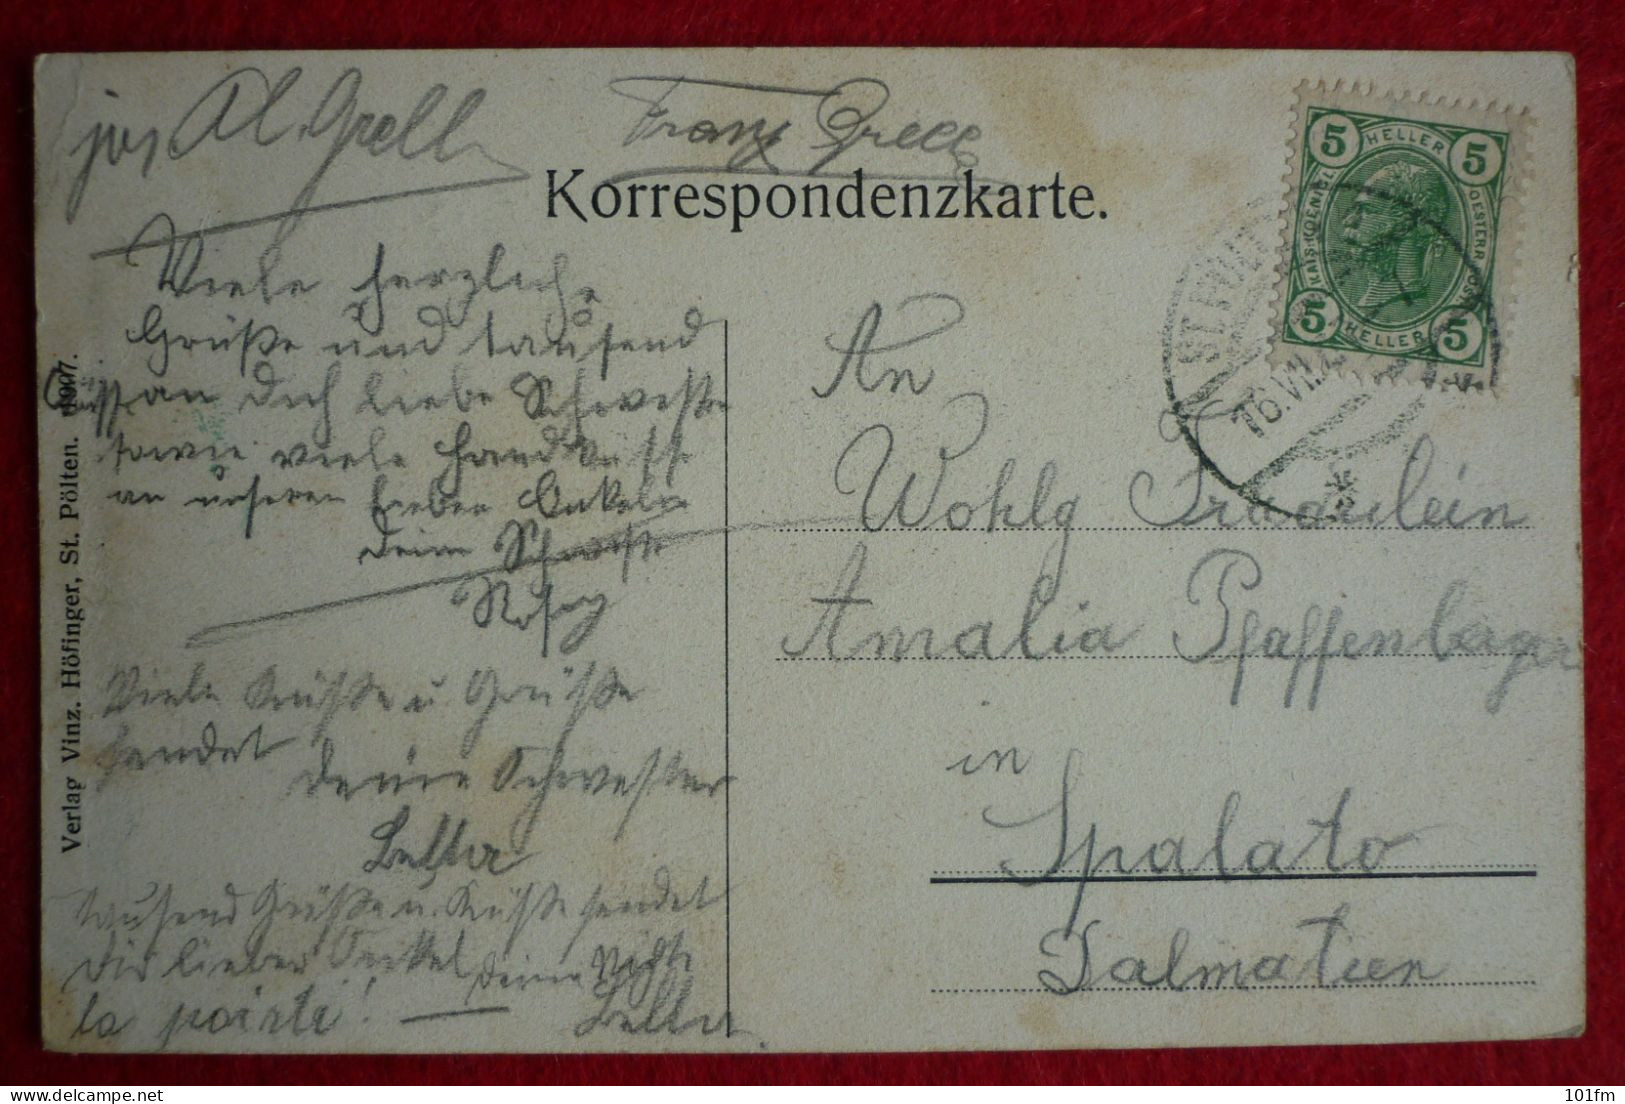 jos Al. Grell
Franz Grell
Korrespondenzkarte.
5 HELLER 5
KAIS. KOENIGL.
OESTERR. POST
5 HELLER 5
ST. PÖLTEN
16. VII.
*
Viele herzliche
Grüße und tausend
an dich liebe Schweste
sowie viele Handküsse
an unseren lieben Onkel
deine Schweste
Rosy
Viele Küsse u Grüße
sendet
deine Schwester
tausend Grüße u. Küsse sendet
Dir lieber Onkel deine Nichte
An
Wohlg Fräulein
Amalia Pfaffenberger
in
Spalato
Dalmatien
Verlag Vinz. Höfinger, St. Pölten. 1907.
101fm